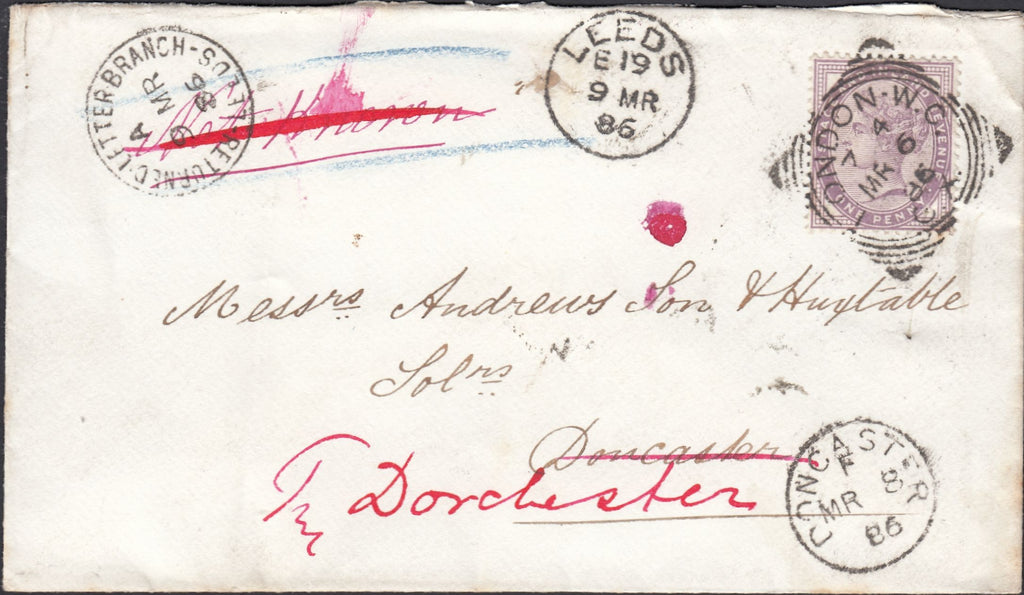 RETURNED LETTER BRANCH-
A
9 MR
86
Not Known
LEEDS
E 19
9 MR
86
LONDON·W.C
4
7
MR
6
86
ONE PENNY
Messrs Andrews Son & Huxtable
Solrs
Doncaster
Try Dorchester
DONCASTER
F
MR 8
86